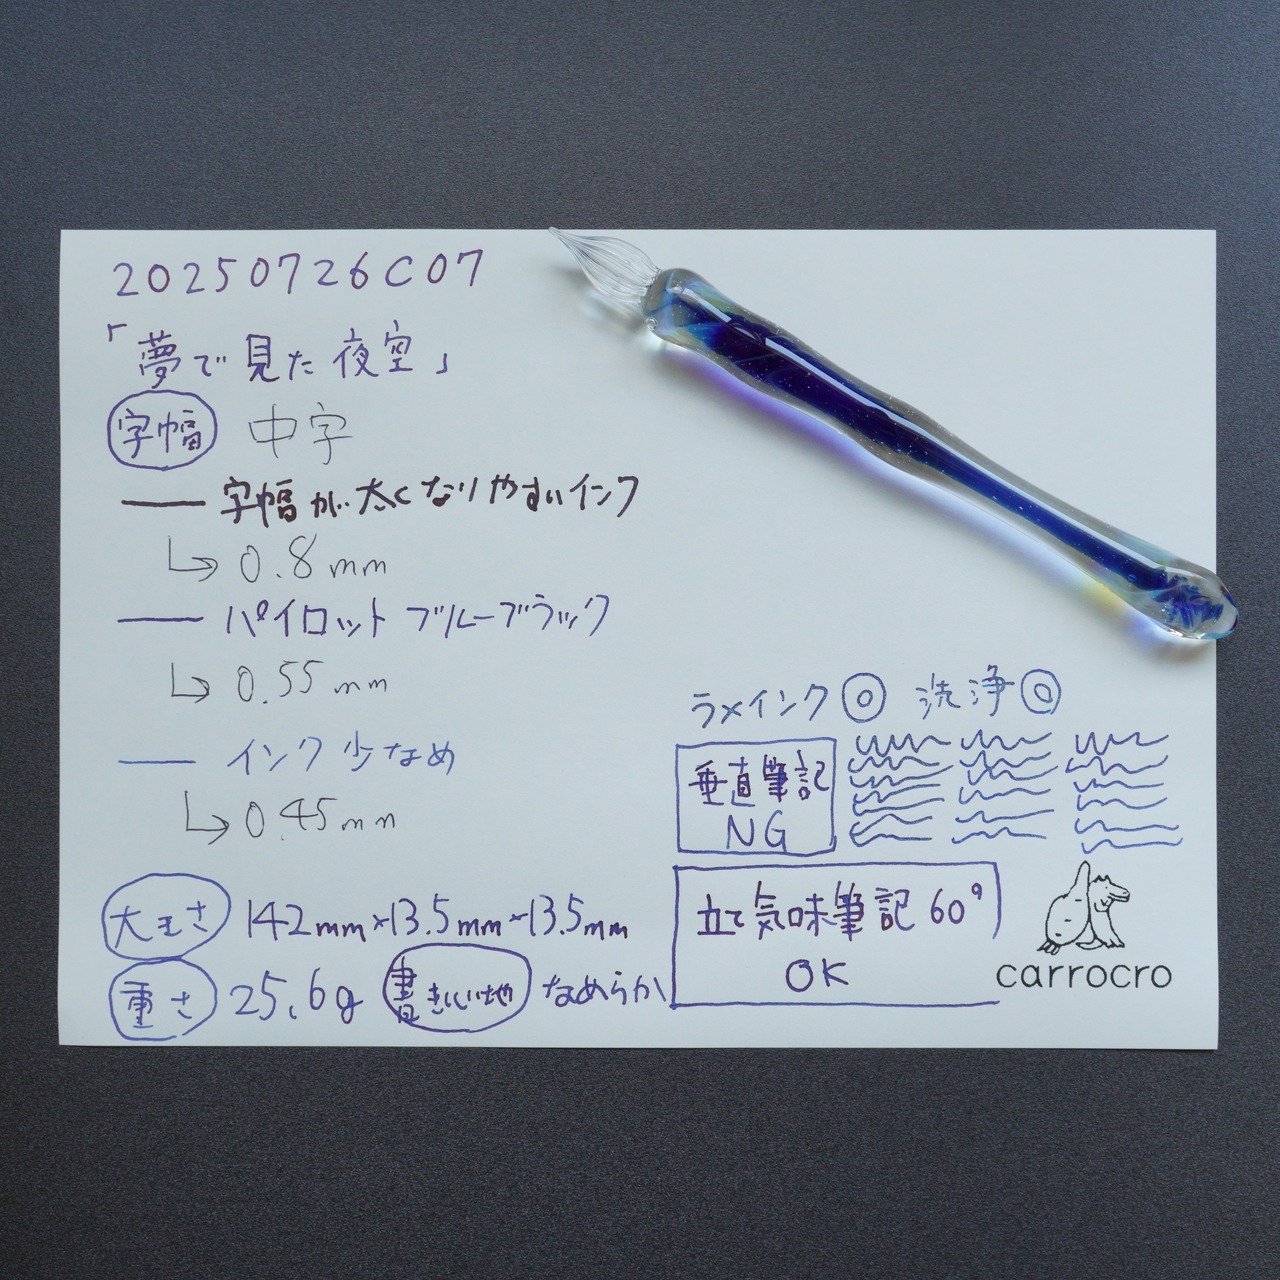 20250726C07
「夢で見た夜空」
字幅 中字
字幅が太くなりやすいインク
0.8mm
パイロットブルーブラック
0.55mm
インク少なめ
0.45mm
大きさ 142mm×13.5mm×13.5mm
重さ 25.6g 書き心地 なめらか
ラメインク◎ 洗浄◎
垂直筆記
NG
立て気味筆記60°
OK
carrocro